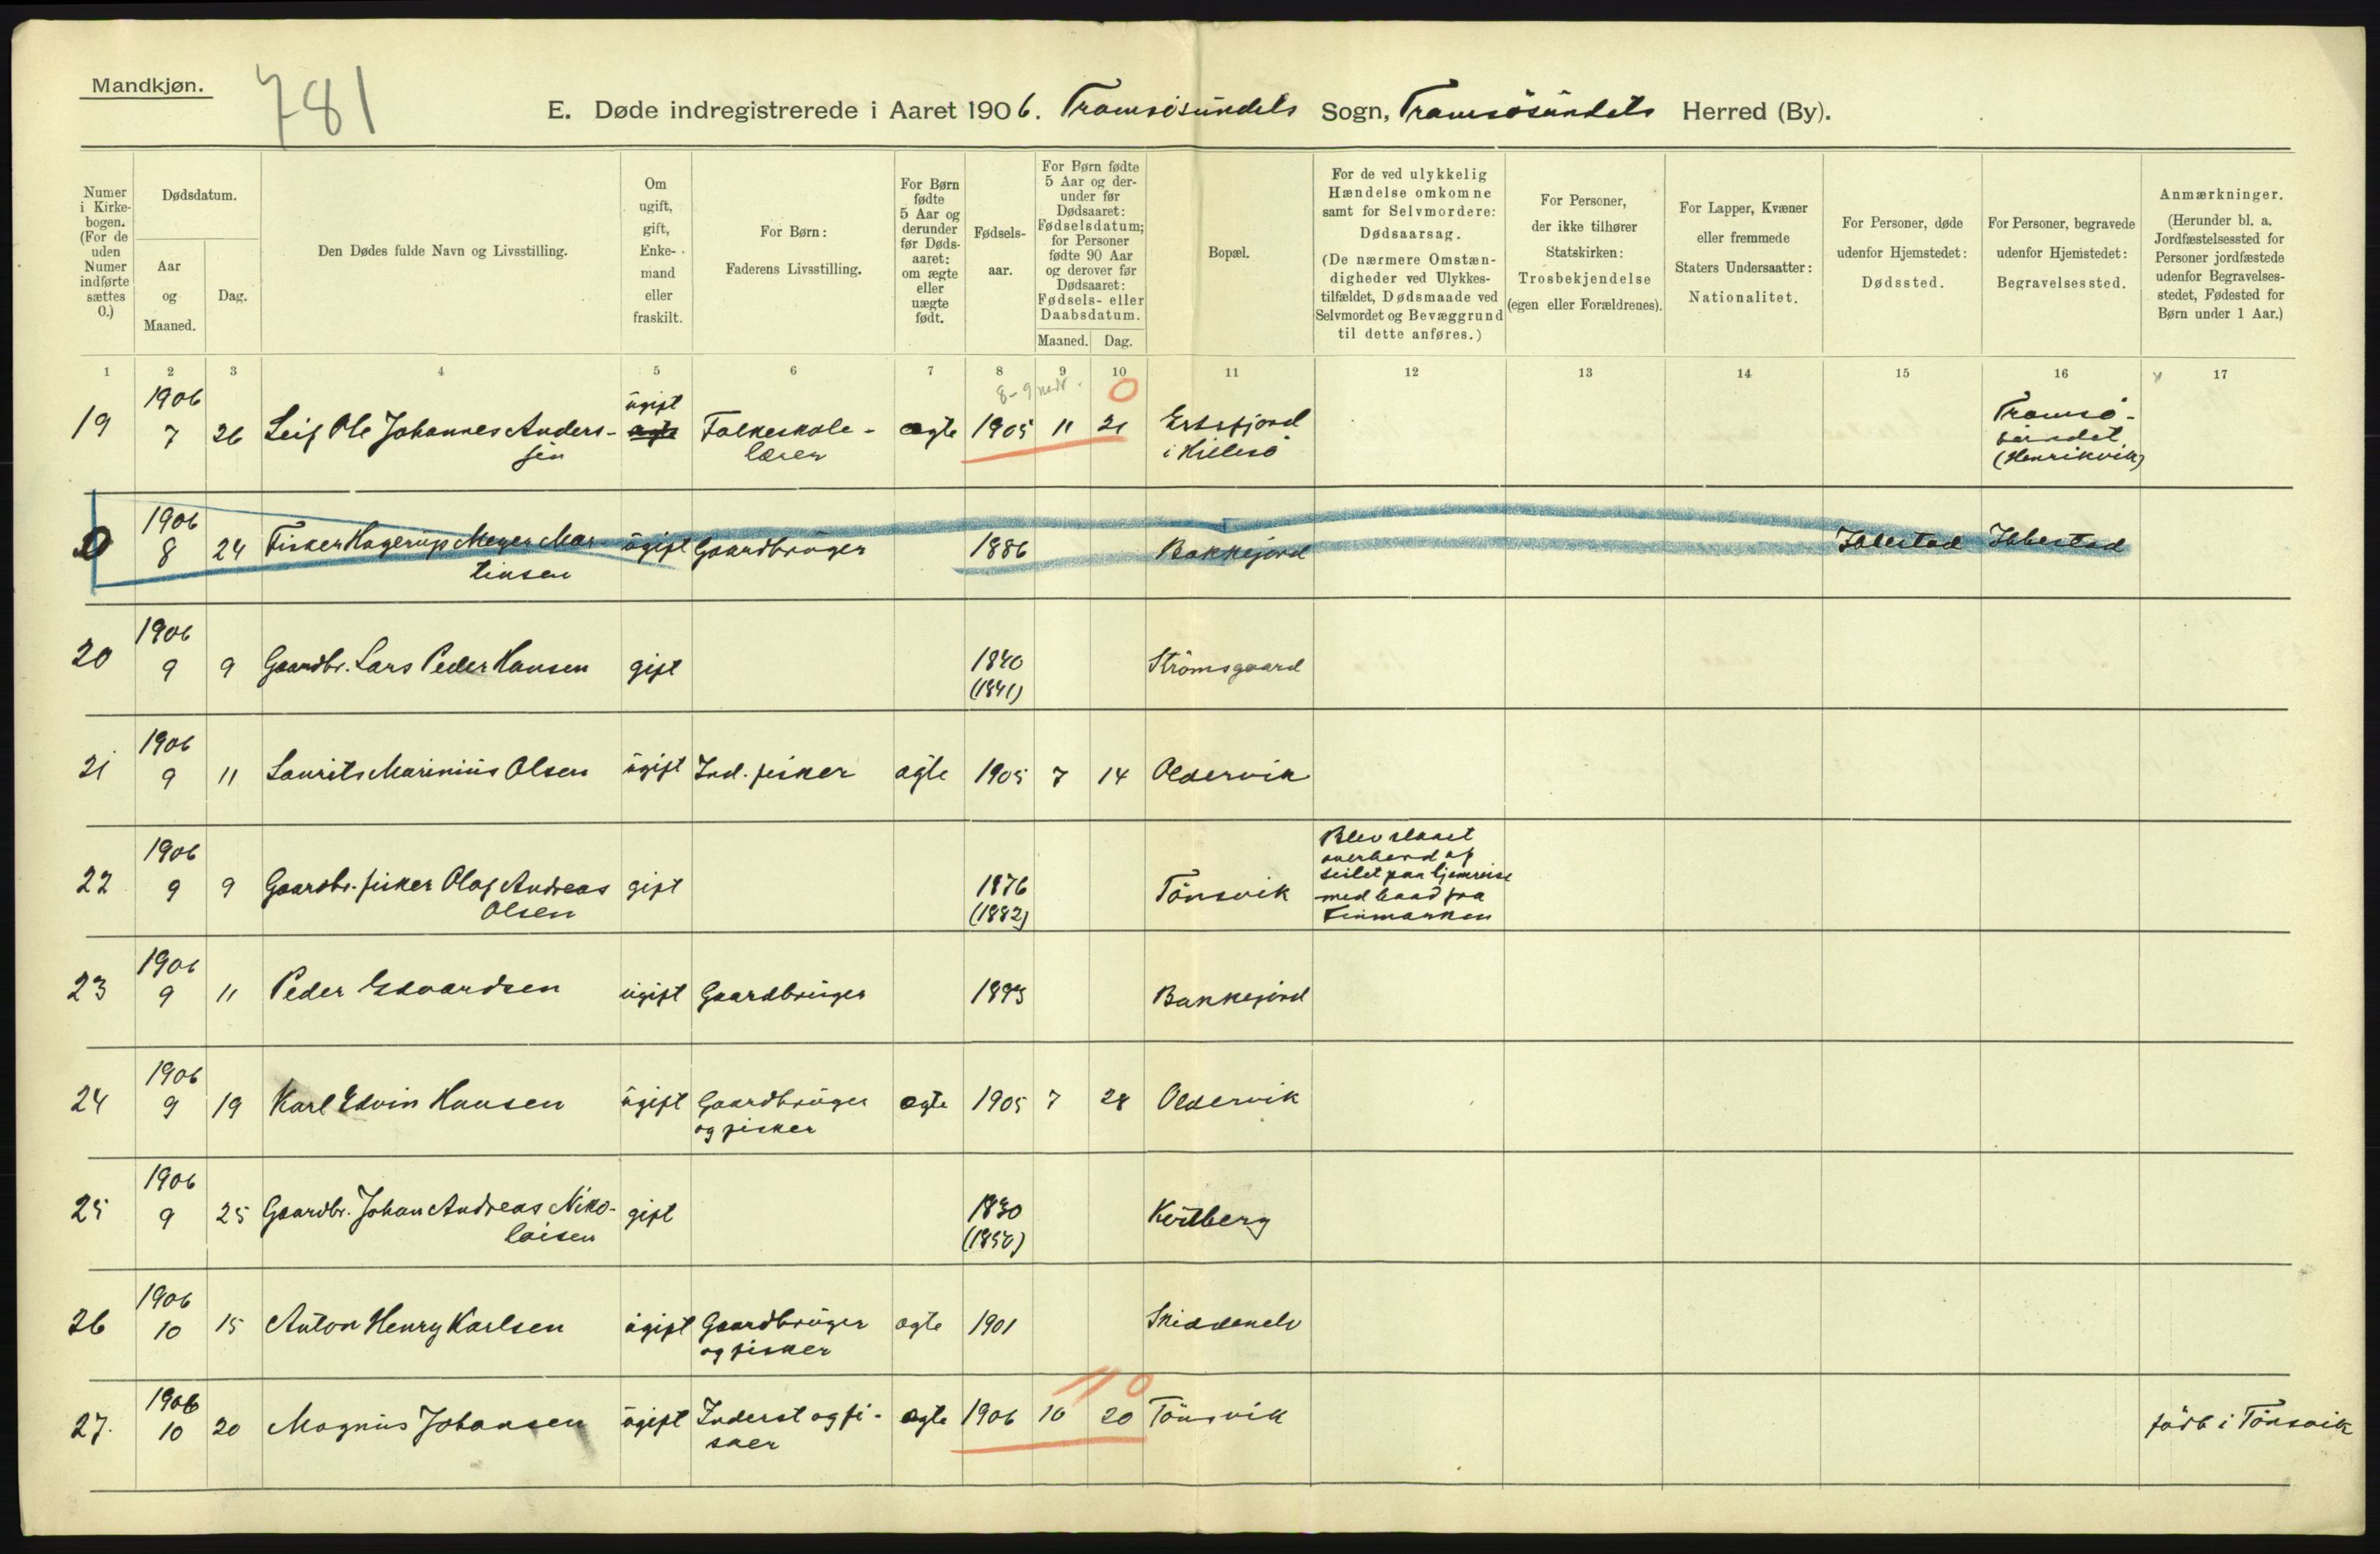 Mandkjøn.
781
E. Døde indregistrerede i Aaret 1906. Tromsøsundets Sogn, Tromsøsundets Herred (By).
Numer i Kirkebogen. (For de uden Numer indførte sættes 0.)
Dødsdatum.
Aar og Maaned.
Dag.
Den Dødes fulde Navn og Livsstilling.
Om ugift, gift, Enkemand eller fraskilt.
For Børn: Faderens Livsstilling.
For Børn fødte 5 Aar og derunder før Dødsaaret: om ægte eller uægte født.
Fødselsaar.
For Børn fødte 5 Aar og derunder før Dødsaaret: Fødselsdatum; for Personer fødte 90 Aar og derover før Dødsaaret: Fødsels- eller Daabsdatum.
Maaned. Dag.
Bopæl.
For de ved ulykkelig Hændelse omkomne samt for Selvmordere: Dødsaarsag. (De nærmere Omstændigheder ved Ulykkestilfældet, Dødsmaade ved Selvmordet og Bevæggrund til dette anføres.)
For Personer, der ikke tilhører Statskirken: Trosbekjendelse (egen eller Forældrenes).
For Lapper, Kvæner eller fremmede Staters Undersaatter: Nationalitet.
For Personer, døde udenfor Hjemstedet: Dødssted.
For Personer, begravede udenfor Hjemstedet: Begravelsessted.
Anmærkninger. (Herunder bl. a. Jordfæstelsessted for Personer jordfæstede udenfor Begravelsesstedet, Fødested for Børn under 1 Aar.)
1 2 3 4 5 6 7 8 9 10 11 12 13 14 15 16 17
19 1906 7 26 Leif Ole Johannes Anderssen ugift Folkeskolelærer ægte 1905 11 21 Ersfjord i Hillesö Tromsösundet (Henrikvik)
8-9 0
0 1906 8 24 Fisker Hagerup Meyer Martinsen ugift Gaardbruger 1886 Bakkejord Ibbestad Ibbestad
20 1906 9 9 Gaardbr. Lars Peder Hansen gift 1840 (1841) Strömsgaard
21 1906 9 11 Laurits Marinius Olsen ugift Ind. fisker ægte 1905 7 14 Oldervik
22 1906 9 9 Gaardbr. fisker Olaf Andreas Olsen gift 1876 (1882) Tönsvik Blev slaaet overbord af seilet paa hjemreise med baad fra Finmarken
23 1906 9 11 Peder Edvardsen ugift Gaardbruger 1893 Bakkejord
24 1906 9 19 Karl Edvin Hansen ugift Gaardbruger og fisker ægte 1905 7 28 Oldervik
25 1906 9 25 Gaardbr. Johan Andreas Nikolaisen gift 1830 (1850)
26 1906 10 15 Anton Henry Karlsen ugift Gaardbruger og fisker ægte 1901 Skiddenelv
27. 1906 10 20 Magnus Johansen ugift Inderst og fisker ægte 1906 10 20 Tönsvik född i Tönsvik
0